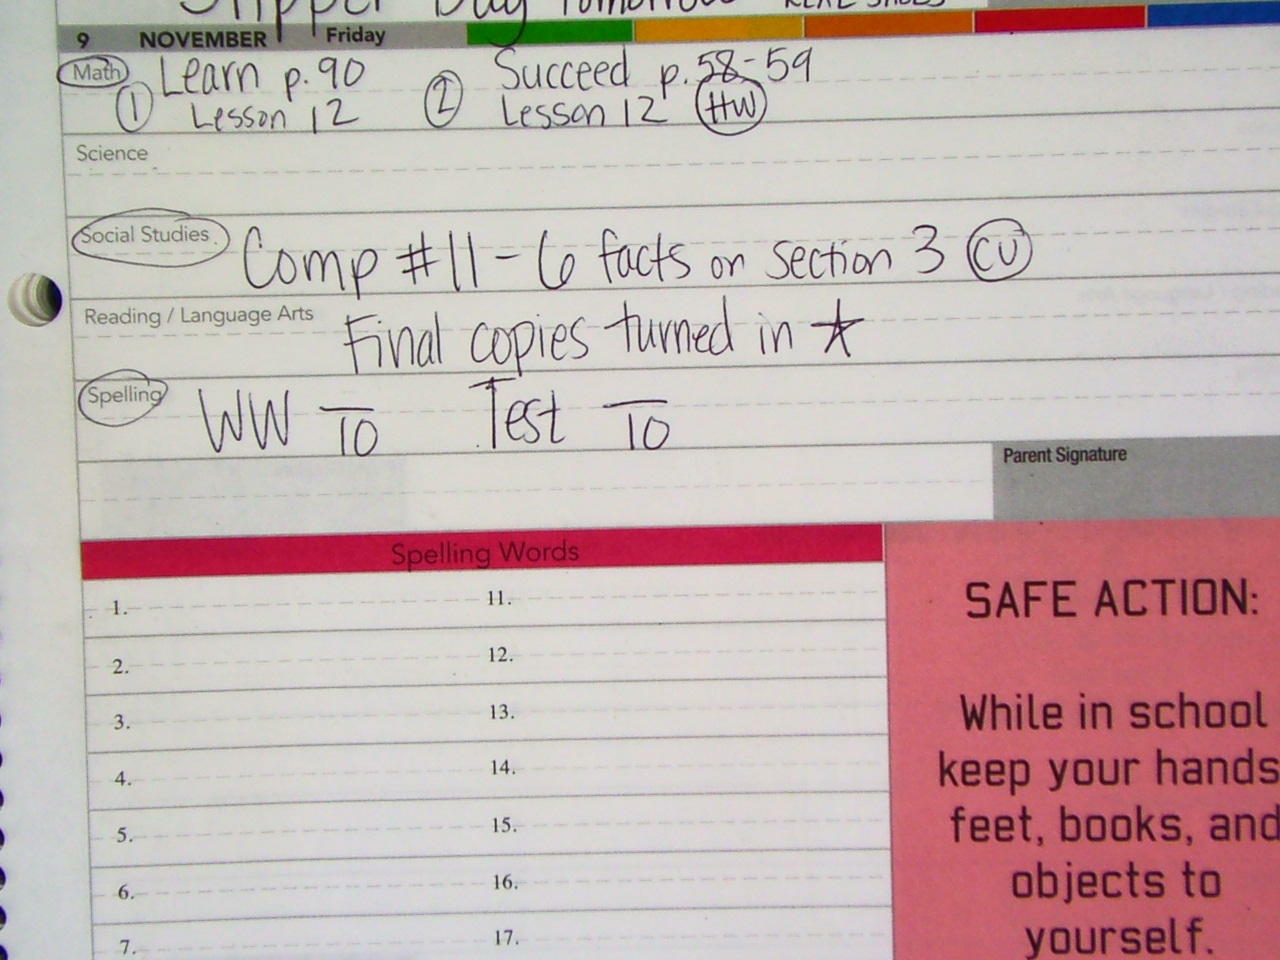 Slipper Day Tomorrow REAL SHOES
9 NOVEMBER Friday
Math Learn p.90 Succeed p.58-59
① Lesson 12 ② Lesson 12 HW
Science
Social Studies Comp #11 - 6 facts on section 3 CU
Reading / Language Arts
Final copies turned in ★
Spelling WW __/10 Test __/10
Parent Signature
Spelling Words
1. 11.
2. 12.
3. 13.
4. 14.
5. 15.
6. 16.
7. 17.
SAFE ACTION:
While in school
keep your hands
feet, books, and
objects to
yourself.